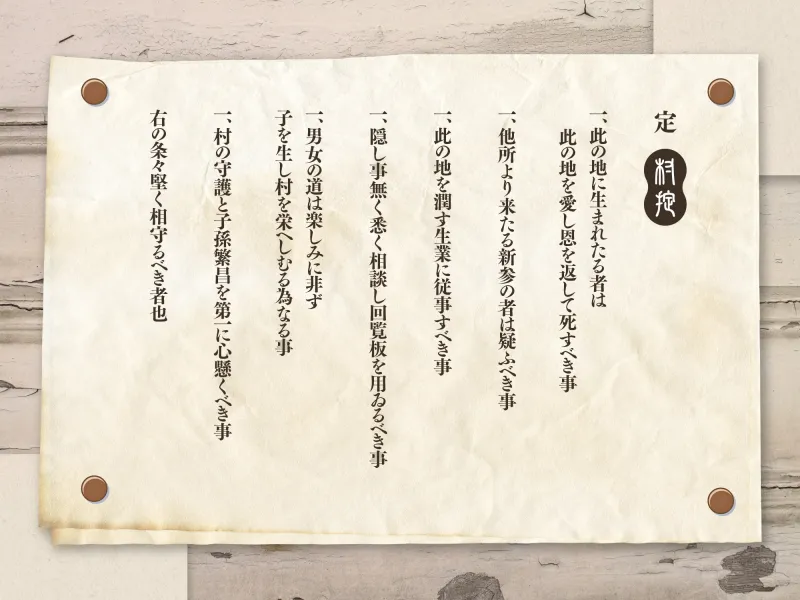 定
村掟
一、此の地に生まれたる者は
此の地を愛し恩を返して死すべき事
一、他所より来たる新参の者は疑ふべき事
一、此の地を潤す生業に従事すべき事
一、隠し事無く悉く相談し回覧板を用ゐるべき事
一、男女の道は楽しみに非ず
子を生し村を栄へしむる為なる事
一、村の守護と子孫繁昌を第一に心懸くべき事
右の条々堅く相守るべき者也